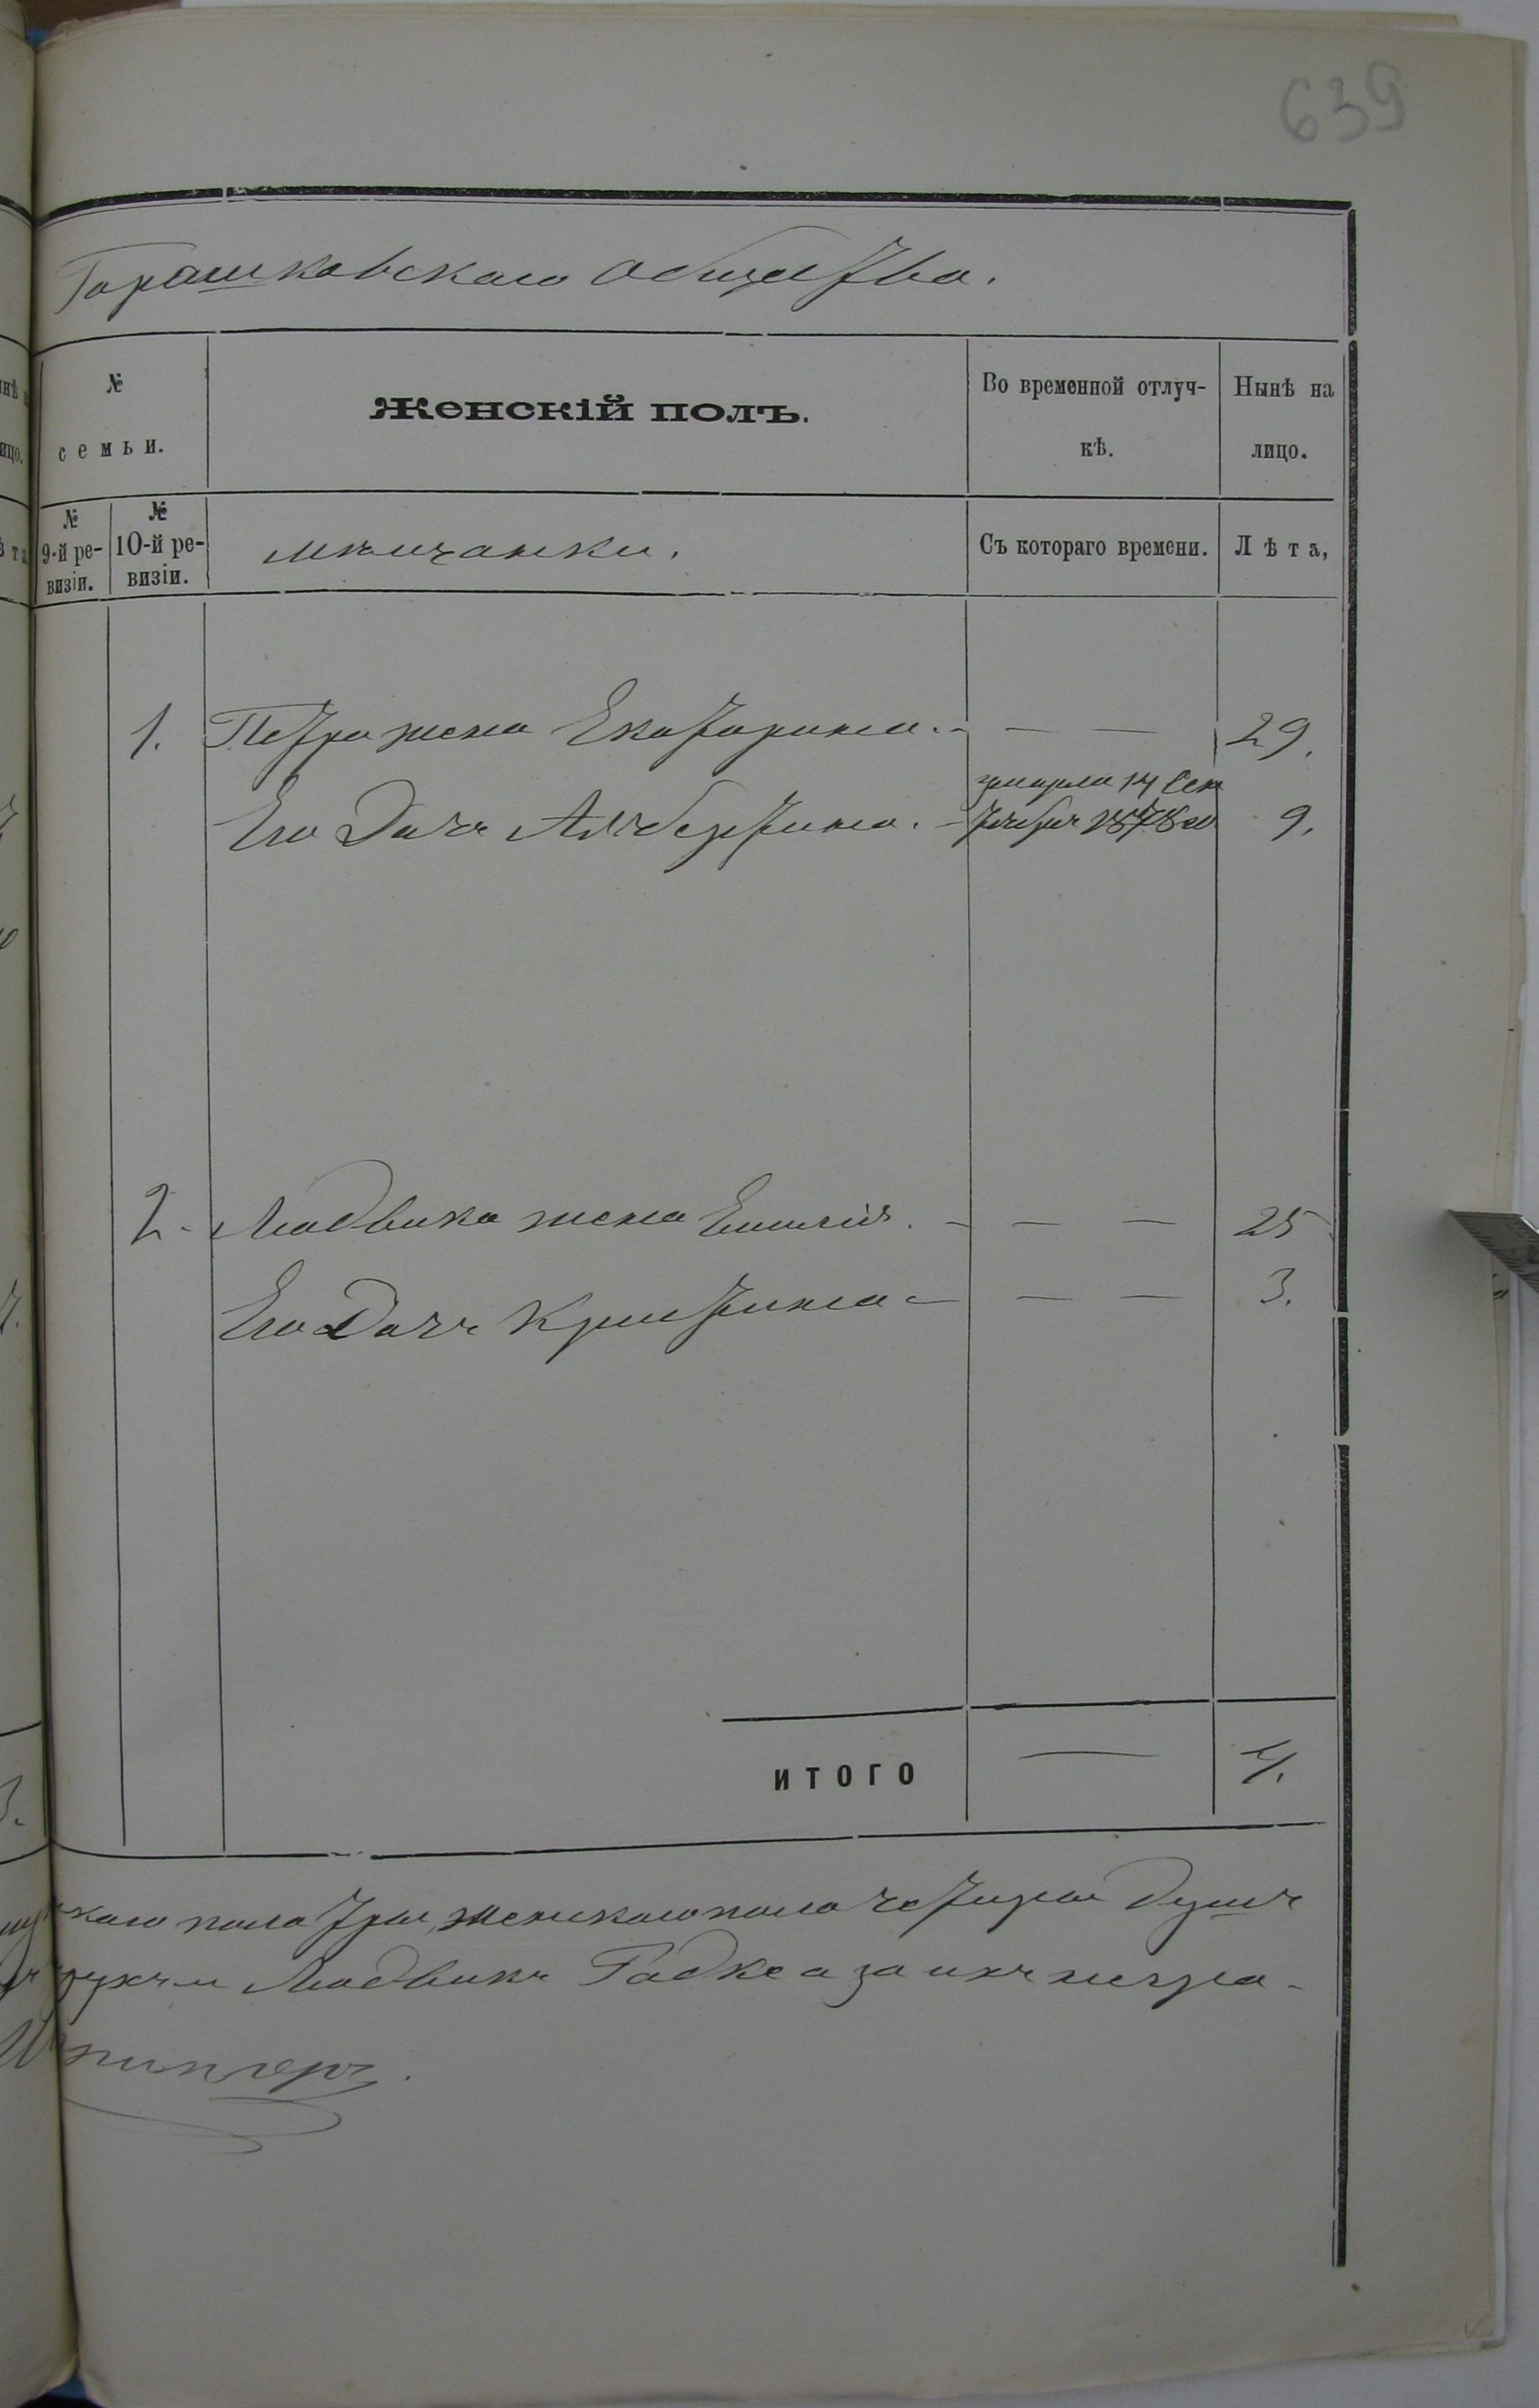 639
Горошковскаго общества.
№ семьи.
Женскій полъ.
Во временной отлуч-
кѣ.
Нынѣ на
лицо.
№ 9-й ре-
визіи.
№ 10-й ре-
визіи.
мѣщанки.
Съ котораго времени.
Лѣта,
1. Петра жена Екатерина. - — — 29.
умерла 14 Сен
Его Дочь Альбертина. - тября 1878 го 9.
2. Людвика жена Емилія. - — — 25
Его Дочь Кристина - — — 3.
ИТОГО — 4.
скаго пола три, женскаго пола четыре душъ
Людвикъ Радке а за ихъ негра-